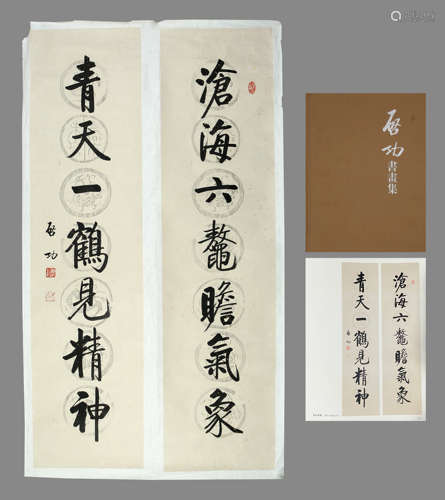 滄海六鰲瞻氣象
青天一鶴見精神
啓功
啓功
書畫集
滄海六鰲瞻氣象
青天一鶴見精神
啓功